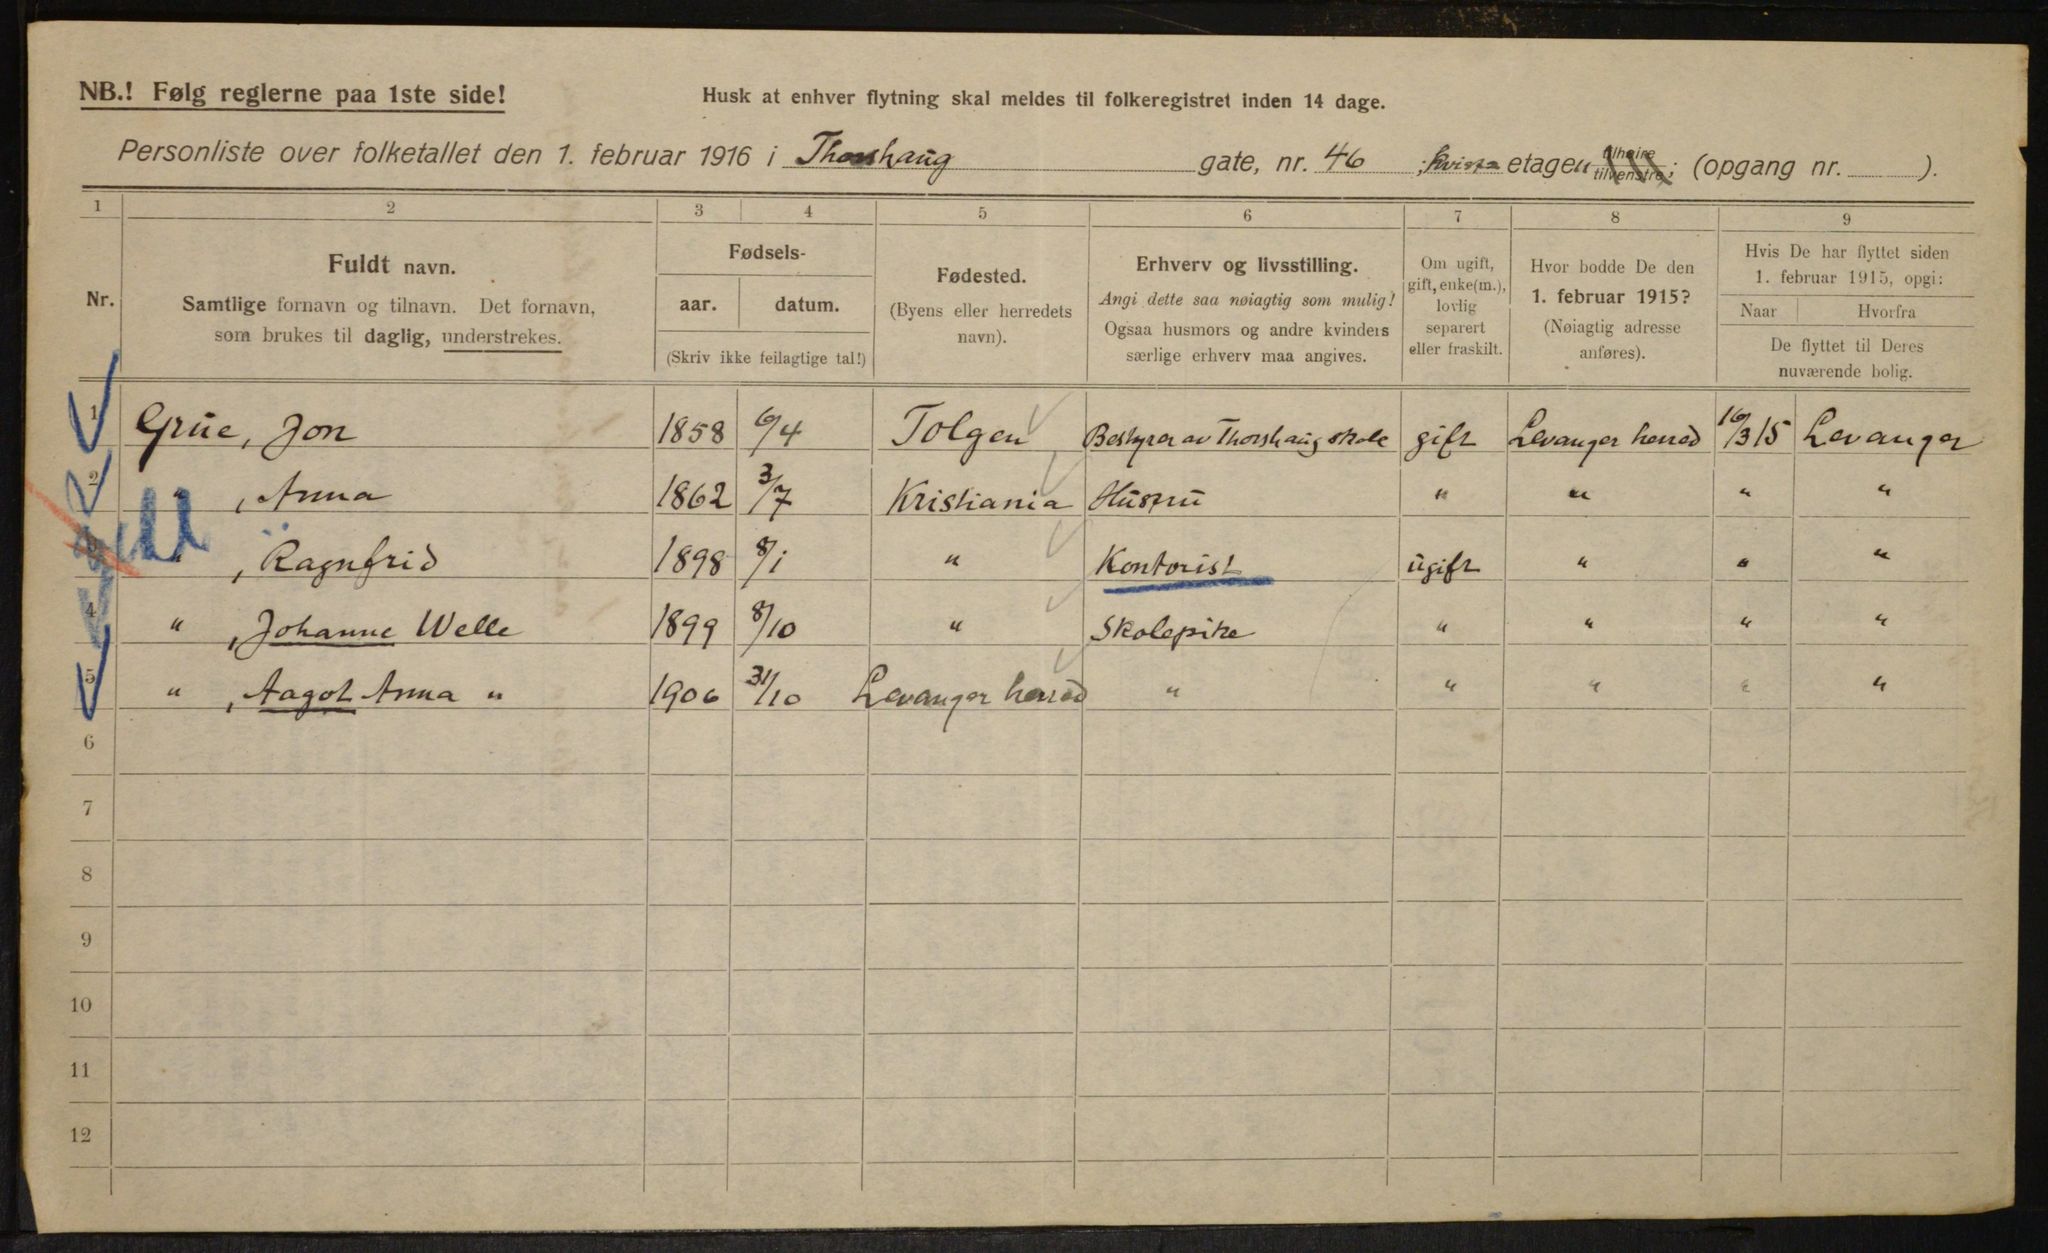 NB.! Følg reglerne paa 1ste side!
Husk at enhver flytning skal meldes til folkeregistret inden 14 dage.
Personliste over folketallet den 1. februar 1916 i Thorshaug gate, nr. 46 ; etagen tilhøire tilvenstre; (opgang nr. ).
1 2 3 4 5 6 7 8 9
Nr.
Fuldt navn.
Samtlige fornavn og tilnavn. Det fornavn,
som brukes til daglig, understrekes.
Fødsels-
aar. datum.
(Skriv ikke feilagtige tal!)
Fødested.
(Byens eller herredets
navn).
Erhverv og livsstilling.
Angi dette saa nøiagtig som mulig!
Ogsaa husmors og andre kvinders
særlige erhverv maa angives.
Om ugift,
gift, enke(m.),
lovlig
separert
eller fraskilt.
Hvor bodde De den
1. februar 1915?
(Nøiagtig adresse
anføres).
Hvis De har flyttet siden
1. februar 1915, opgi:
Naar Hvorfra
De flyttet til Deres
nuværende bolig.
1 Grue, Jon 1858 6/4 Tolgen Bestyrer av Thorshaug skole gift Levanger herred 16/3 15 Levanger
2 " , Anna 1862 3/7 Kristiania Hustru " " " "
3 " , Ragnfrid 1898 8/1 " Kontorist ugift " " "
4 " , Johanne Welle 1899 8/10 " Skolepike " " " "
5 " , Aagot Anna " 1906 31/10 Levanger herred " " " " "
6
7
8
9
10
11
12